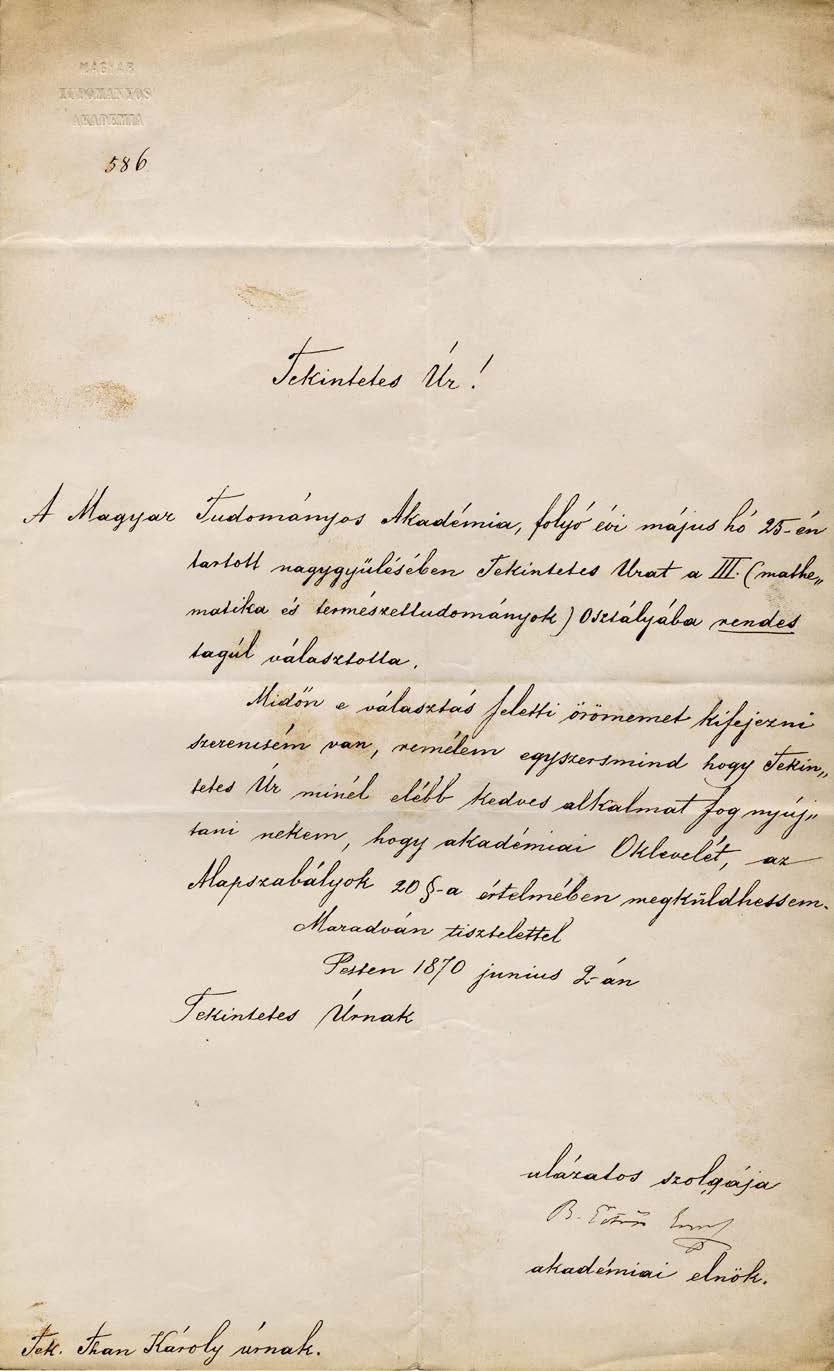 MAGYAR
TUDOMÁNYOS
AKADÉMIA
586
Tekintetes Úr!
A Magyar Tudományos Akadémia, folyó évi május hó 25-én
tartott nagygyülésében Tekintetes Urat a III. (mathe„
matika és természettudományok) Osztályába rendes
tagúl választotta.
Midőn e választás feletti örömemet kifejezni
szerencsém van, remélem egyszersmind hogy Tekin„
tetes Úr minél elébb kedves alkalmat fog nyúj„
tani nekem, hogy akadémiai Oklevelét, az
Alapszabályok 20 §-a értelmében megküldhessem.
Maradván tisztelettel
Pesten 1870 junius 2-án
Tekintetes Úrnak
alázatos szolgája
B. Eötvös
akadémiai elnök.
Tek. Than Károly úrnak.